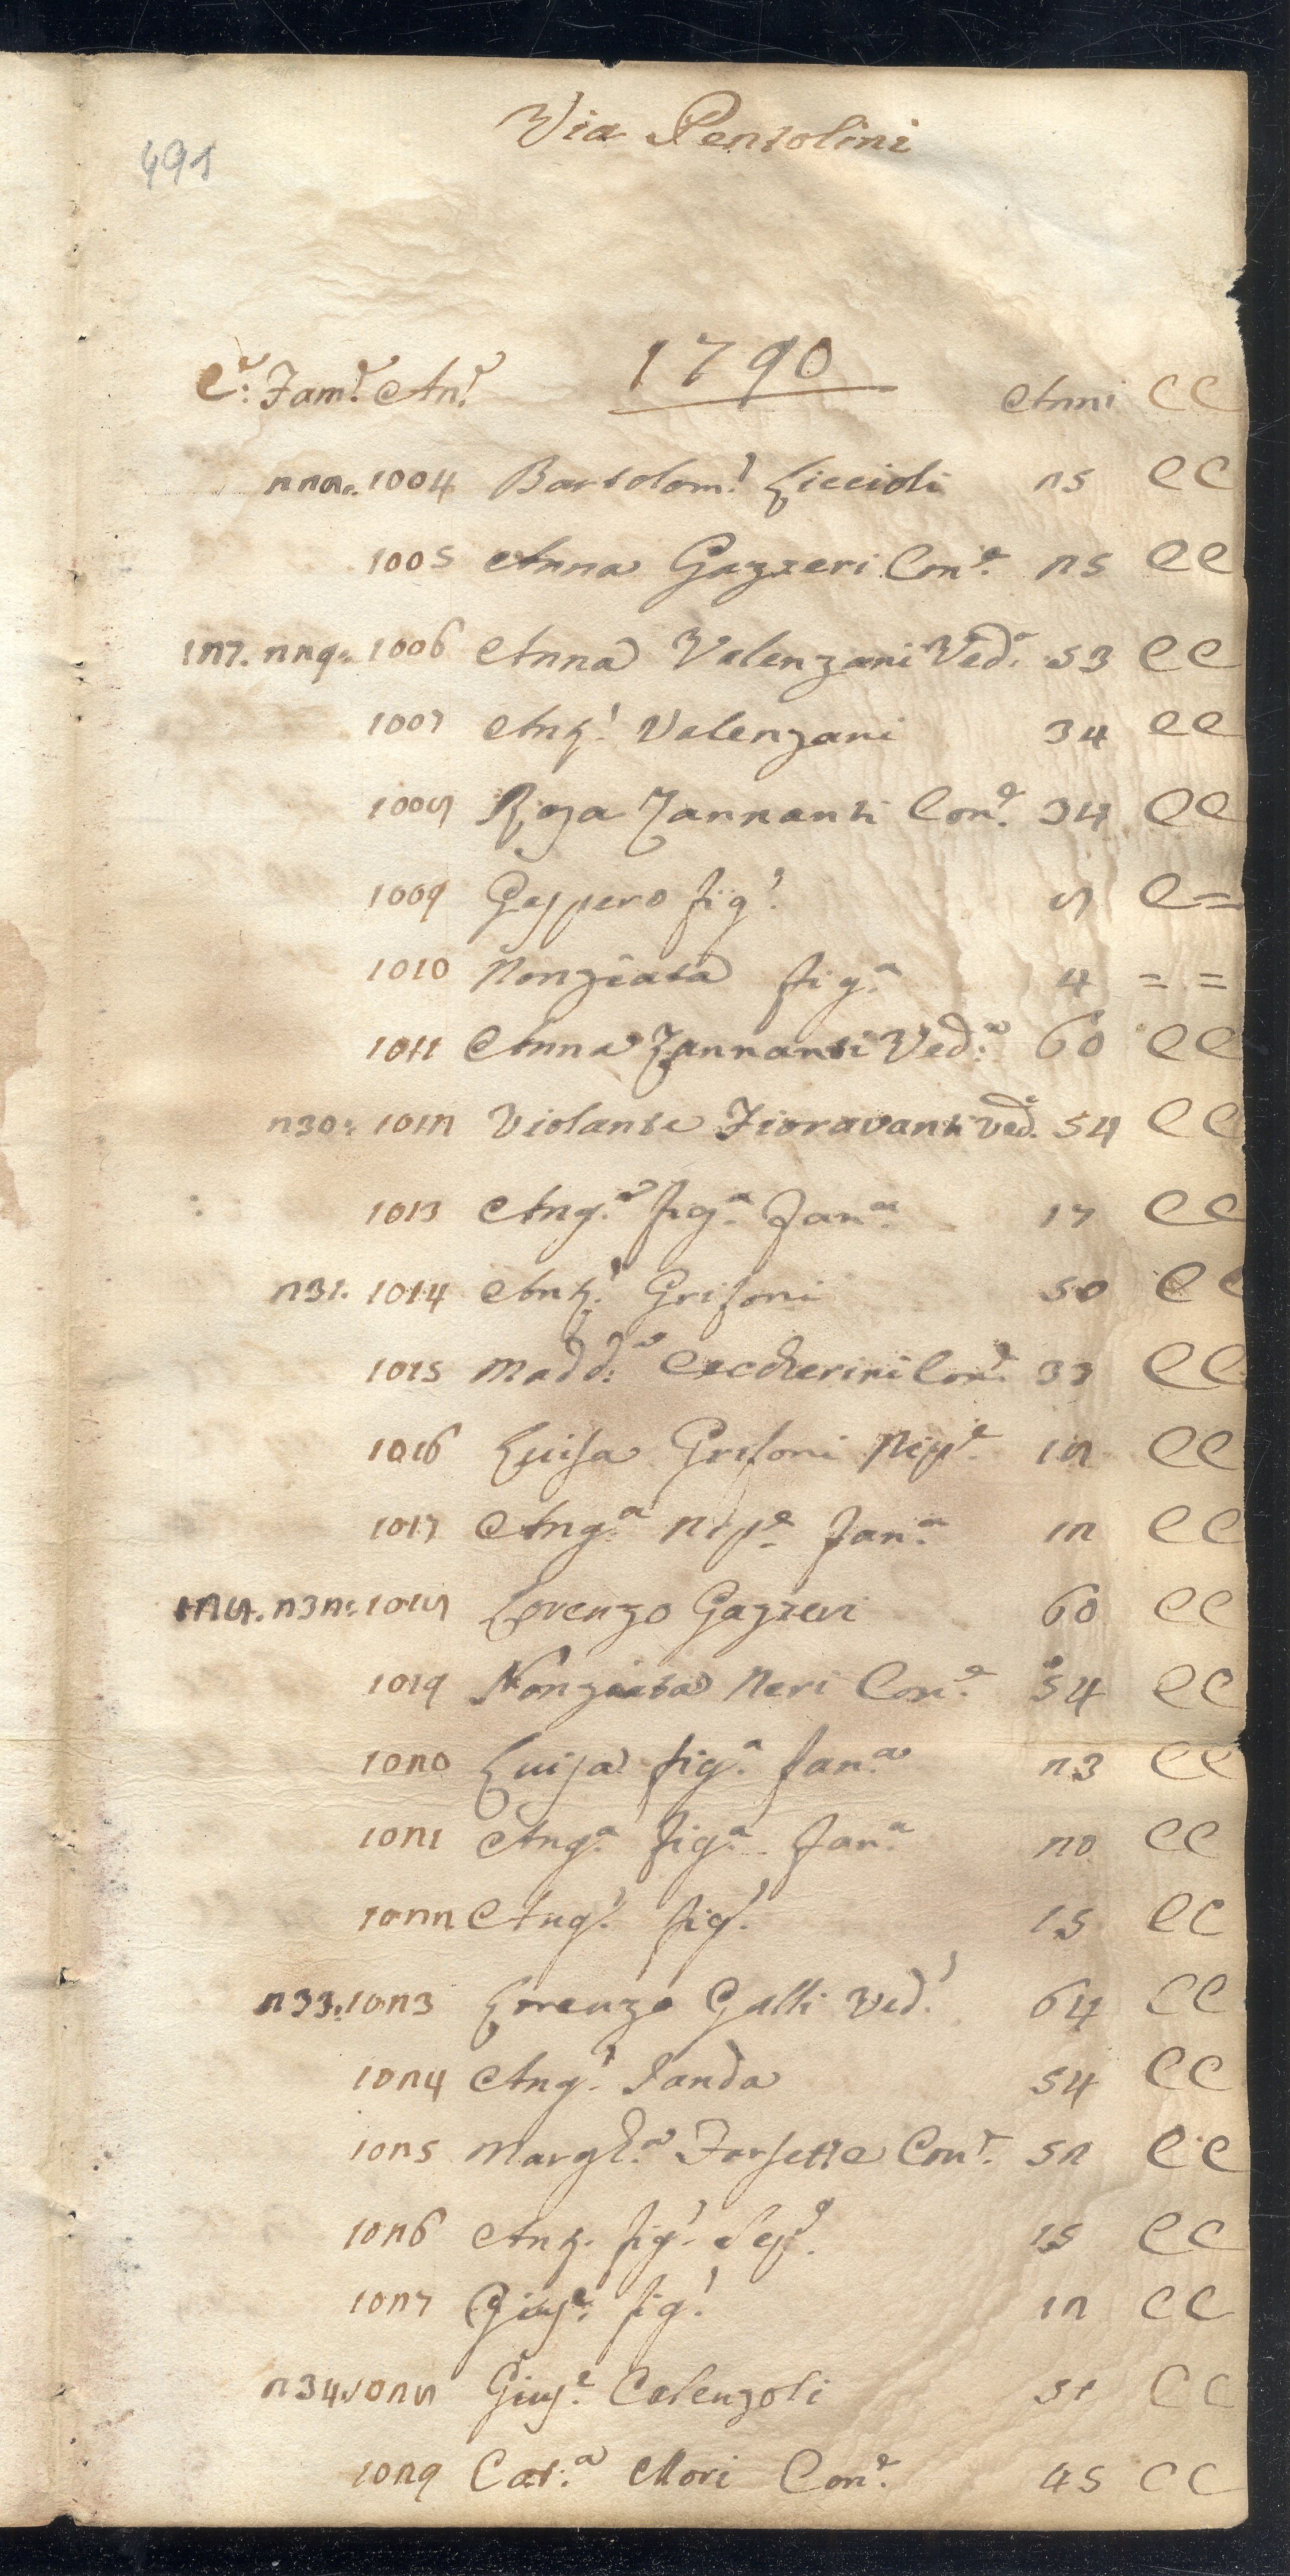 491
Via Pentolini
1790
C.e Fam.e An.e Anni CC
228. 1004 Bartolom.o Liccioli 25 CC
1005 Anna Gazzeri Con.e 25 CC
127. 229. 1006 Anna Valenzani Ved.a 53 CC
1007 Ant.o Valenzani 34 CC
1008 Rosa Zannanti Con.e 34 CC
1009 Gaspero fig.o 8 C=
1010 Nonziata fig.a 4 = =
1011 Anna Zannanti Ved.a 60 CC
230. 1012 Violante Fioravanti Ved.a 54 CC
1013 Ang.a fig.a Fan.a 17 CC
231. 1014 Ant.o Grifoni 50 CC
1015 Madd.a Ceccherini Con.e 33 CC
1016 Luisa Grifoni Nip.e 12 CC
1017 Ang.a Nip.e Fan.a 12 CC
128. 232. 1018 Lorenzo Gazzeri 60 CC
1019 Nonziata Neri Con.e 54 CC
1020 Luisa fig.a fan.a 23 CC
1021 Ang.a fig.a Fan.a 20 CC
1022 Ang.o fig.o 15 CC
233. 1023 Lorenzo Galli Ved.o 64 CC
1024 Ang.o Landa 54 CC
1025 Margh.a Forsette Con.e 52 CC
1026 Ant. fig.o 15 CC
1027 Gius.e fig.o 12 CC
234. 1028 Gius.e Calenzoli 51 CC
1029 Cat.a Mori Con.e 45 CC